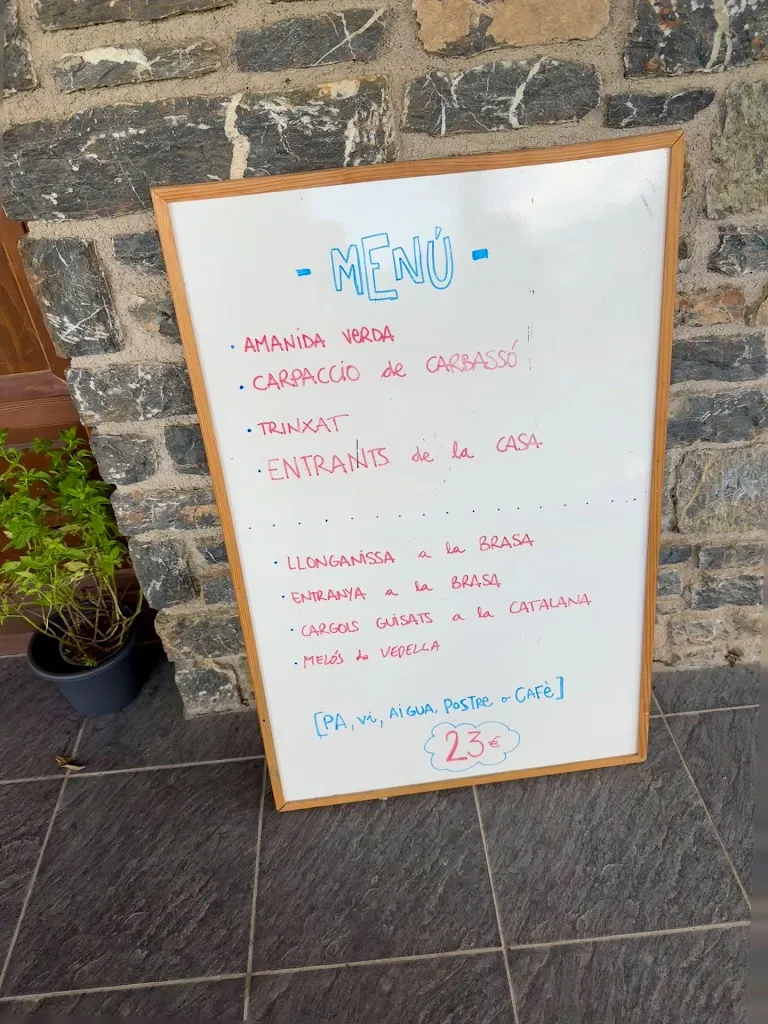 - MENÚ -
· AMANIDA VERDA
· CARPACCIO de CARBASSÓ
· TRINXAT
· ENTRANTS de la CASA
· LLONGANISSA a la BRASA
· ENTRANYA a la BRASA
· CARGOLS GUISATS a la CATALANA
· MELÓS de VEDELLA
[PA, Vi, AIGUA, POSTRE o CAFÈ]
23€